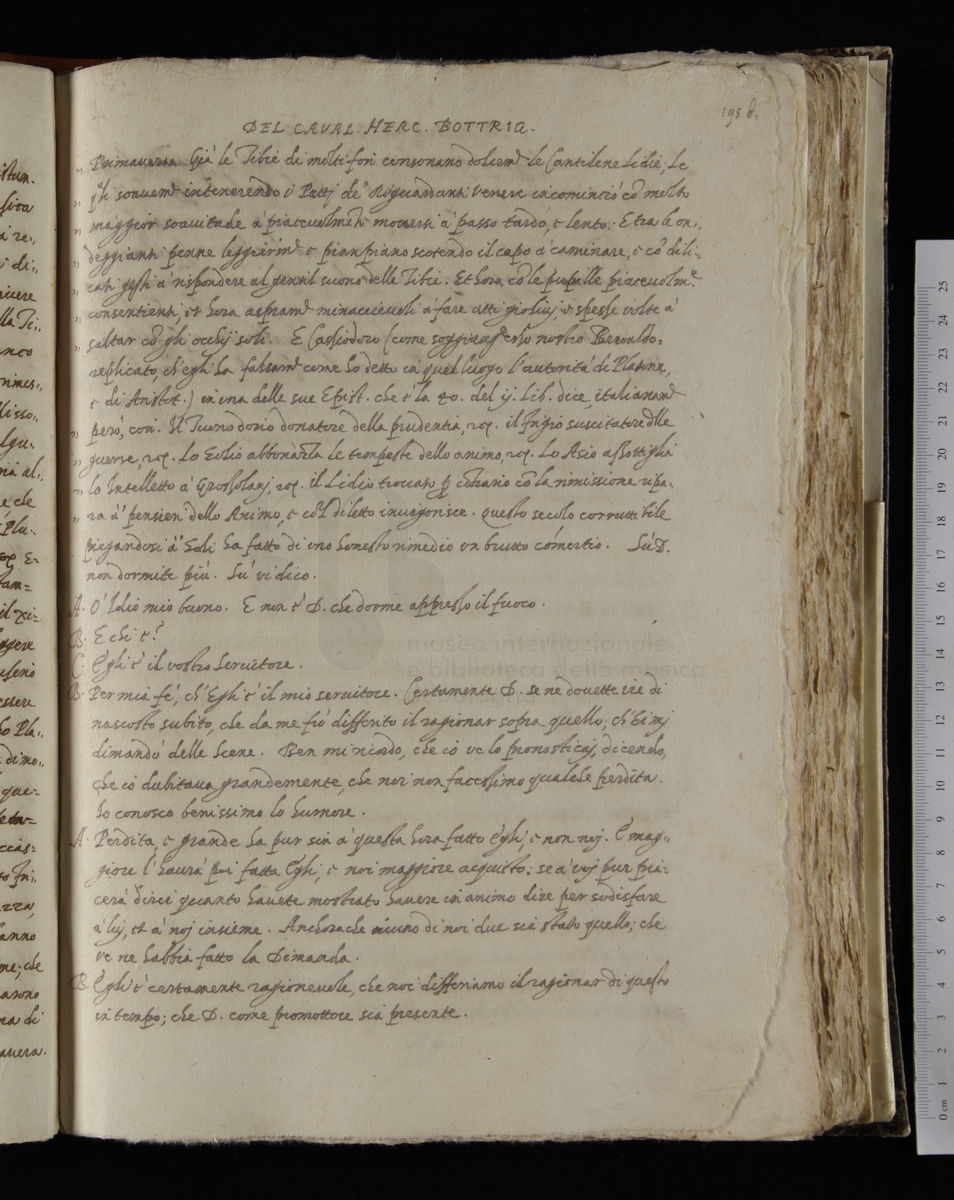 195 b.
DEL CAVAL. HERC. BOTTRIG.
„ Primavera. Già le Tibie di molti fori consonano dolcem.te le Cantilene Lidie; Le
„ q.li soavem.te intenerendo i Petti de' Riguardanti Venere incominciò cō molto
„ maggior soavitade à piacevolmēte moversi à passo tardo, e lento. E tra le on„
„ deggianti penne leggiermē.te e pian piano scotendo il capo à caminare, e cō dili-
„ cati gesti à rispondere al gentil suono delle Tibie. Et hora cō le pupille piacevolm.te
„ consentienti, et hora aspram.te minaccievoli à fare atti giolivi, e spesse volte à
„ saltar cō gli occhij soli. E Cassiodoro (come soggiung' esso nostro Beroaldo,
replicato, ch'egli ha falsam.te come ho detto in quel luogo l'autorità di Platone,
e di Aristot.) in una delle sue Epist. che è la 40. del ij. Lib. dice, italianam.te
„ però, così. Il Tuono dorio donatore della prudentia, il frigio suscitatore dlle
„ guerre, Lo Eolio abbonazza le tempeste dello animo, Lo Asio assottiglia
„ lo Intelletto à Grossolanj, il Lidio trovato cō la rimissione ripa„
„ ra à' pensieri dello Animo, e co'l diletto invigorisce. Questo secolo corruttibile
piegandosi à' balli ha fatto di uno honesto rimedio un brutto cōmertio. Sù D.
non dormite più. Sù vi dico.
A. O' Idio mio buono. E non è D. che dorme appresso il fuoco.
B. E chi è?
C. Egli è il vostro Servitore.
B. Per mia fe', ch'Egli è il mio servitore. Certamente D. se ne dovette ire di
nascosto subito, che da me fù differito il ragionar sopra quello; ch'Ei mj
dimandò delle Scene. Ben mi ricordo, che io ve lo pronosticaj, dicendo,
che io dubitava grandemente, che noi non facessimo qualche perdita.
Io conosco benissimo lo humore.
A. Perdita, e grande ha pur sin à questa hora fatto Egli, e non noj. E mag„
giore l'havrà poi fatta Egli, e noi maggiore acquisto; se à voj pur pia-
cerà dirci quanto havete mostrato havere in animo dire per sodisfare
à luj, et à noj insieme. Anchora che niuno di noi due sia stato quello; che
ve ne habbia fatto la Dimanda.
B. Egli è certamente ragionevole, che noi differiamo il ragionar di questo
in tempo; che D. come promottore sia presente.
museo internazionale
e biblioteca della musica